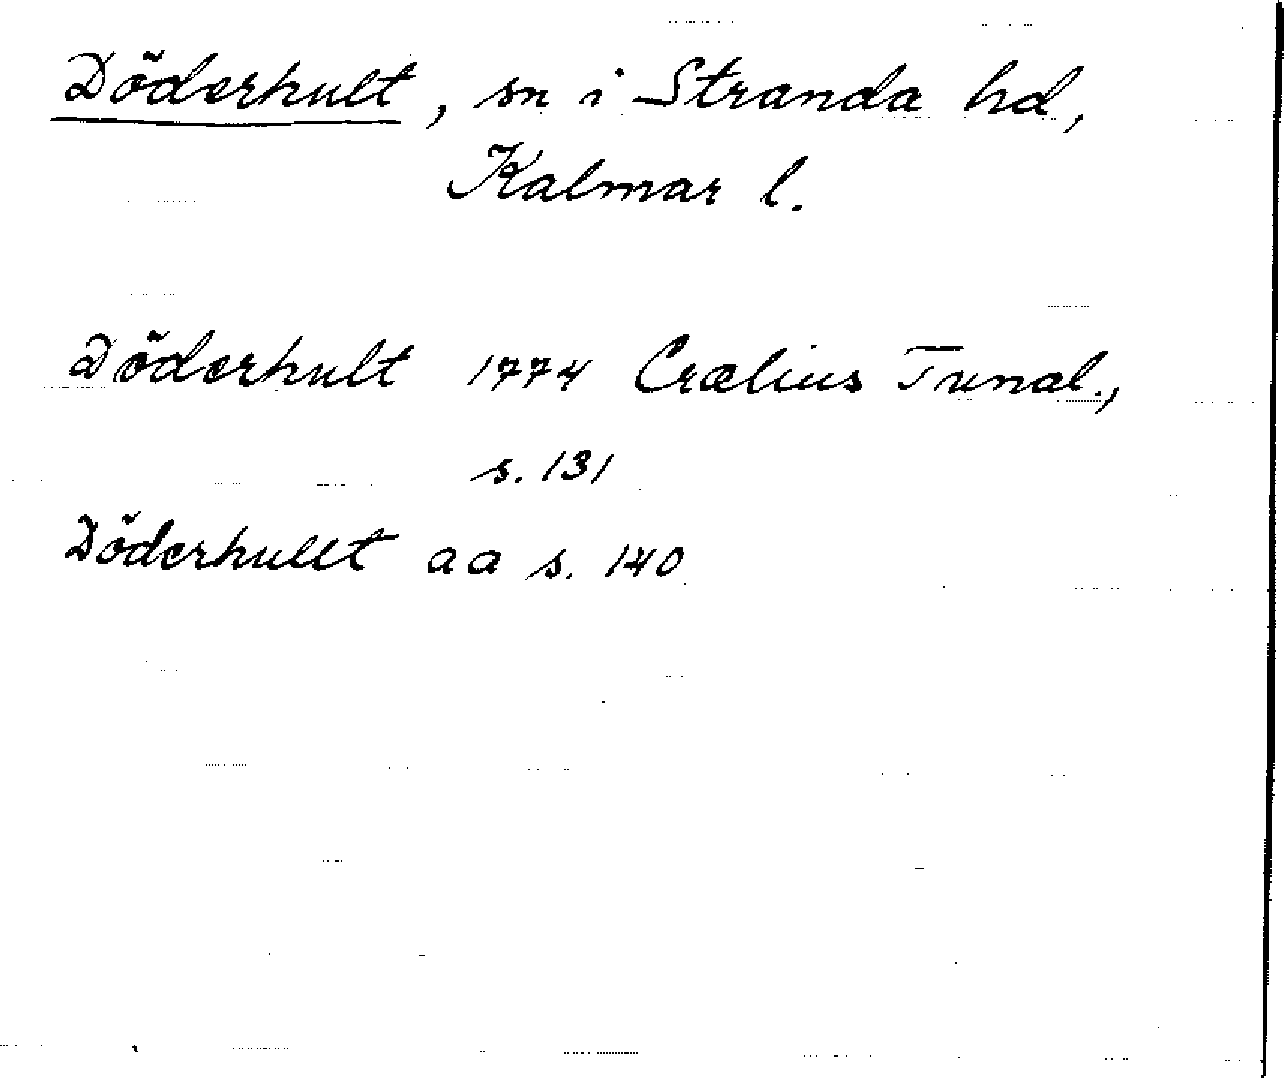 Döderhult, sn i Stranda hd,
Kalmar l.
Döderhult 1774 Crælius Tunal.,
s. 131
Döderhullt aa s. 140